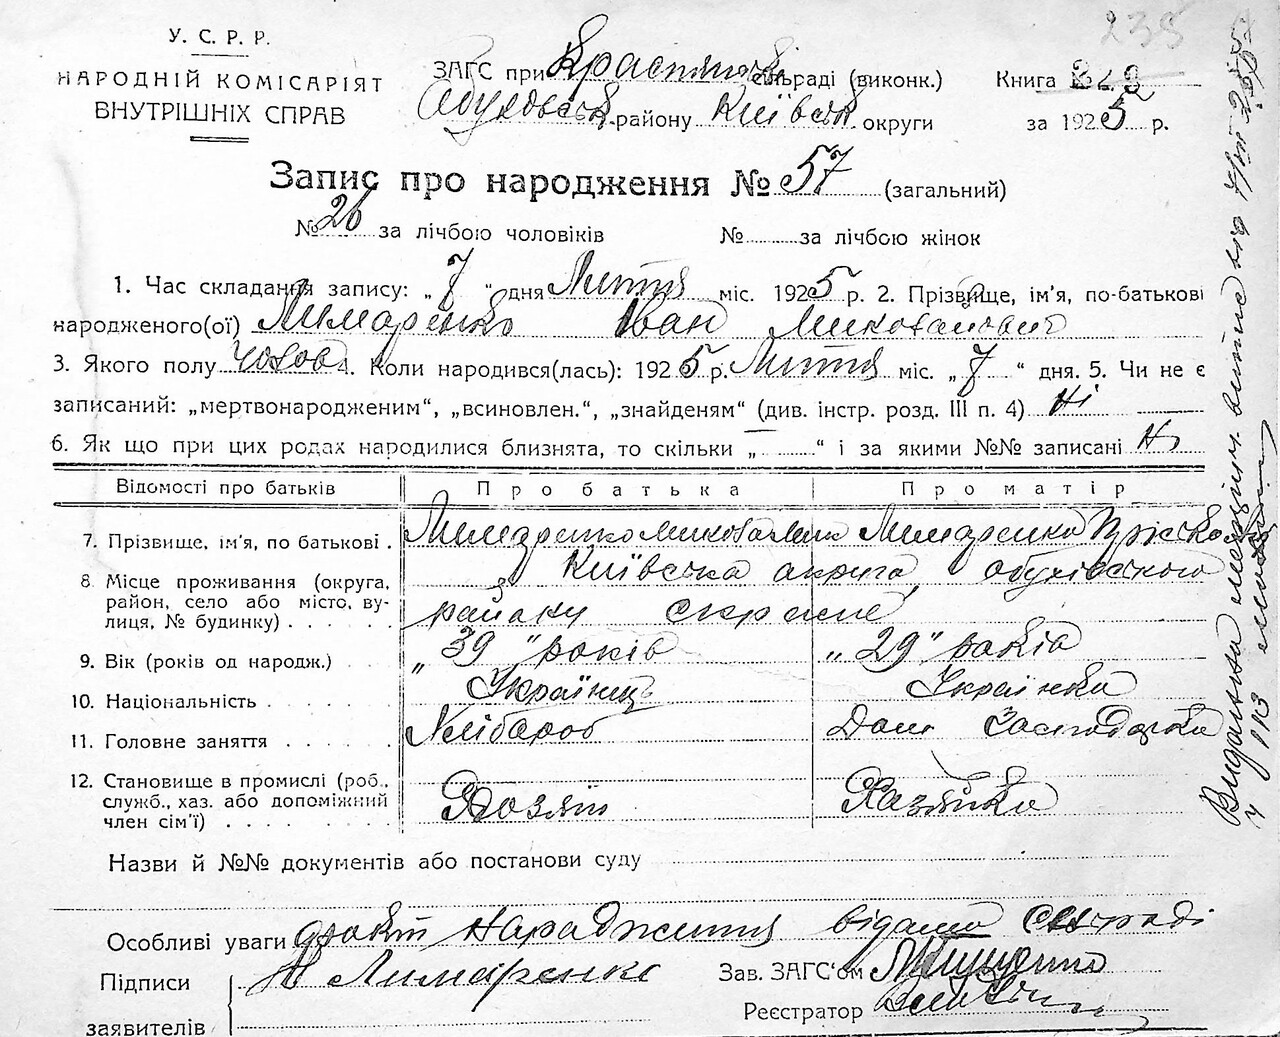 235
У. С. Р. Р.
НАРОДНІЙ КОМІСАРІЯТ
ВНУТРІШНІХ СПРАВ
ЗАГС при сільраді (виконк.) Книга
району Київськ округи за 1925 р.
Запис про народження № 57 (загальний)
№ 26 за лічбою чоловіків № за лічбою жінок
1. Час складання запису: „ 7 " дня Лютія міс. 1925 р. 2. Прізвище, ім'я, по-батькові
народженого(ої) Лимаренко Іван Миколайович
3. Якого полу чолов 4. Коли народився(лась): 1925 р. Лютія міс. „ 7 " дня. 5. Чи не є
записаний: „мертвонародженим", „всиновлен.", „знайденям" (див. інстр. розд. III п. 4) Ні
6. Як що при цих родах народилися близнята, то скільки „ — " і за якими №№ записані Ні
Відомості про батьків Про батька Про матір
7. Прізвище, ім'я, по батькові . Лимаренко Микола Лимаренко
8 Місце проживання (округа, Київська округа, обухівського
район, село або місто, ву-
лиця, № будинку) . . . . . . району
9. Вік (років од народж.) . . . „ 39 " років „ 29 " років
10. Національність . . . . . . Українць Українка
11. Головне заняття . . . . . . Хлібороб Дом Господарка
12. Становище в промислі (роб.,
служб., хаз. або допоміжний Хозяїн Хазяйка
член сім'ї) . . . . . . . .
Назви й №№ документів або постанови суду
Особливі уваги нараджиння сільраді
Підписи Н Лимаренко Зав. ЗАГС'ом
заявителів Реєстратор